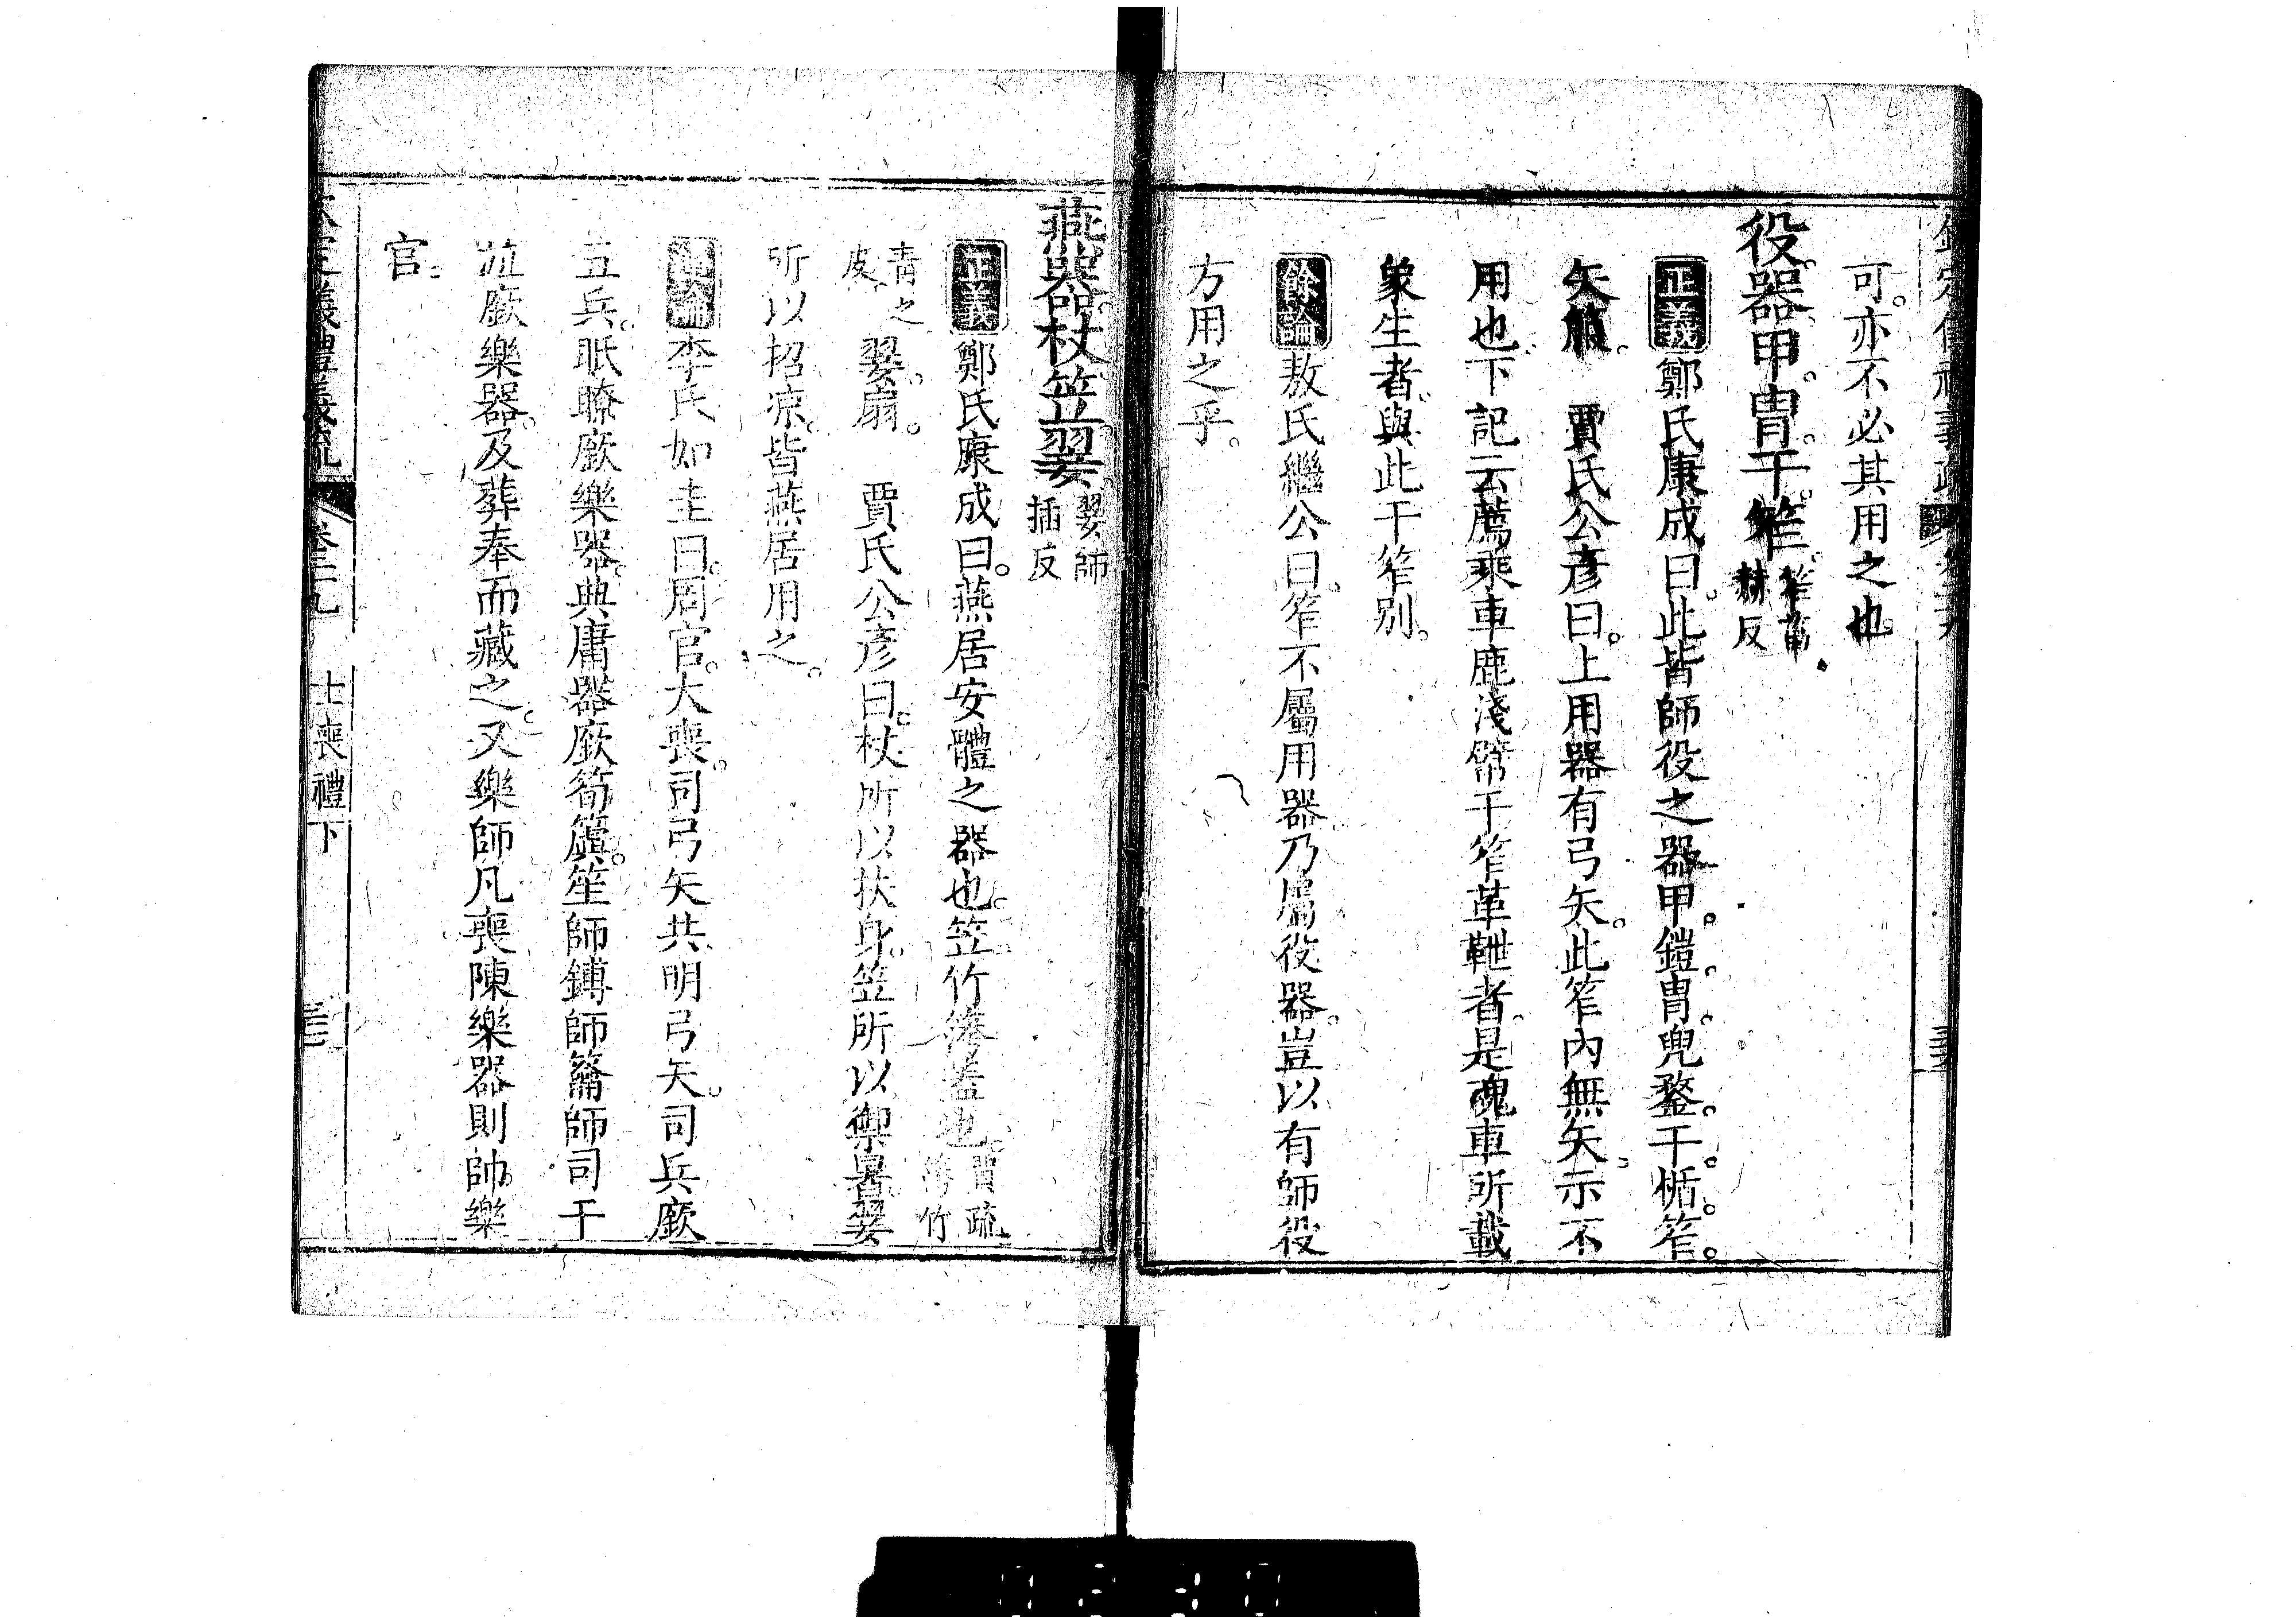 可。亦不必其用之也。
役器。甲。冑。干。笮。笮莊赫反
正義鄭氏康成曰。此皆師役之器。甲。鎧。冑。兜鍪。干。楯。笮。
矢箙。 賈氏公彦曰。上用器有弓矢。此笮內無矢。示不
用也。下記云薦乘車鹿淺幦干笮革靾者。是魂車所載
象生者。與此干笮別。
餘論敖氏繼公曰。笮不屬用器乃屬役器。豈以有師役
方用之乎。
燕器。杖。笠。翣。翣師插反
正義鄭氏康成曰。燕居安體之器也。笠竹䈬蓋也。賈疏竹
青之皮。 翣。扇。 賈氏公彦曰。杖所以扶身。笠所以禦暑。翣
所以招凉。皆燕居用之。
論李氏如圭曰。周官。大喪。司弓矢共明弓矢。司兵廞
五兵。眡瞭廞樂器。典庸器廞筍簴。笙師鎛師籥師司干
竝廞樂器。及葬奉而藏之。又樂師凡喪陳樂器則帥樂
官。
儀禮義疏 卷三十九 士喪禮下